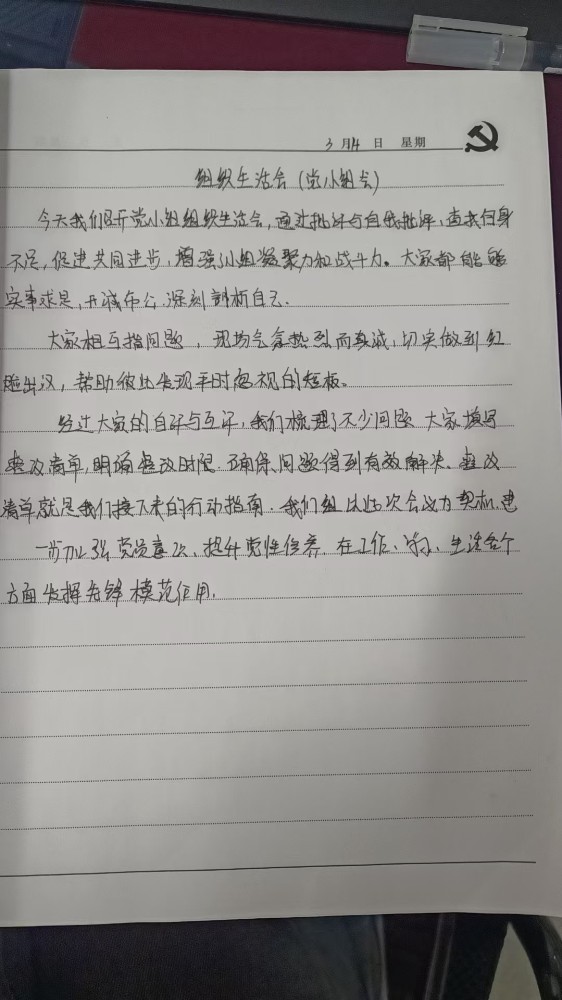 3月14日 星期
组织生活会（党小组会）
今天我们召开党小组组织生活会，通过批评与自我批评，查找自身
不足，促进共同进步，增强小组凝聚力和战斗力。大家都能够
实事求是，开诚布公，深刻剖析自己。
大家相互指问题，现场气氛热烈而真诚，切实做到红
脸出汉，帮助彼此发现平时忽视的短板。
经过大家的自评与互评，我们梳理了不少问题 大家填写
整改清单，明确整改时限，确保问题得到有效解决。整改
清单就是我们接下来的行动指南。我们组以此次会议为契机，进
一步加强党员意识、提升党性修养，在工作、学习、生活各个
方面发挥先锋模范作用。